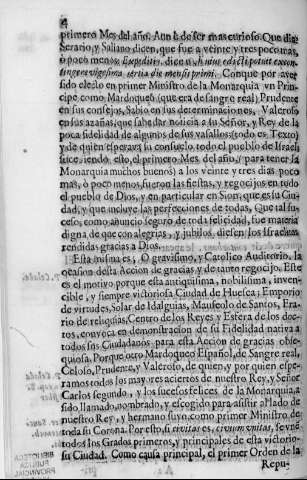 4
primero Mes del año. Aun à de ser mas curioso. Que diz
Serario, y Saliano dicen, que fue a veinte y tres poco mas,
ò poco menos. Expeditis, dice huius edicti potuit
tingere vigesima tertia die mensis primi. Conque por aver
sido electo en primer Ministro de la Monarquia vn Prin-
cipe como Mardoqueo (que era de sangre real) Prudente
en sus consejos, Sabio en sus determinaciones, Valeroso
en sus azañas, que sabe dar noticia a su Señor, y Rey de la
poca fidelidad de algunos de sus vasallos (todo es Texto)
y de quien esperava su consuelo todo el pueblo de Israel:
sucediendo esto, el primero Mes del año, (y para tener la
Monarquia muchos buenos) a los veinte y tres dias poco
mas, ò poco menos, fueron las fiestas, y regocijos en todo
el pueblo de Dios, y en particular en Sion, que es su Ciu-
dad, y que incluye las perfecciones de todas. Que tal su-
ceso, como anuncio seguro de toda felicidad, fue materia
digna de que con alegrias, y jubilos, diesen los Israelitas
rendidas gracias a Dios.
Esta misma es, O gravisimo, y Catolico Auditorio, la
ocasion desta Accion de gracias y de tanto regocijo. Este
es el motivo porque esta antiquisima, nobilisima, inven-
cible, y siempre victoriosa Ciudad de Huesca, Emporio
de virtudes, Solar de Idalguias, Mausoleo de Santos, Era-
rio de reliquias, Centro de los Reyes y Esfera de los doc-
tos, convoca en demonstracion de su Fidelidad nativa à
todos sus Ciudadanos para esta Accion de gracias obse-
quiosa. Porque otro Mardoqueo Español, de Sangre real,
Celoso, Prudente, y Valeroso, de quien, y por quien espe-
ramos todos los mayores aciertos de nuestro Rey, y Señor
Carlos segundo, y los sucesos felices de la Monarquia, à
sido llamado, nombrado, y escogido para asistir al lado de
nuestro Rey, y hermano suyo como primer Ministro de
toda su Corona. Por esto, si civitas es, civium vnitas, se vnè
todos los Grados primeros, y principales de esta victorio-
sa Ciudad. Como causa principal, el primer Orden de la
Repu-
BIBLIOTECA
PUBLICA